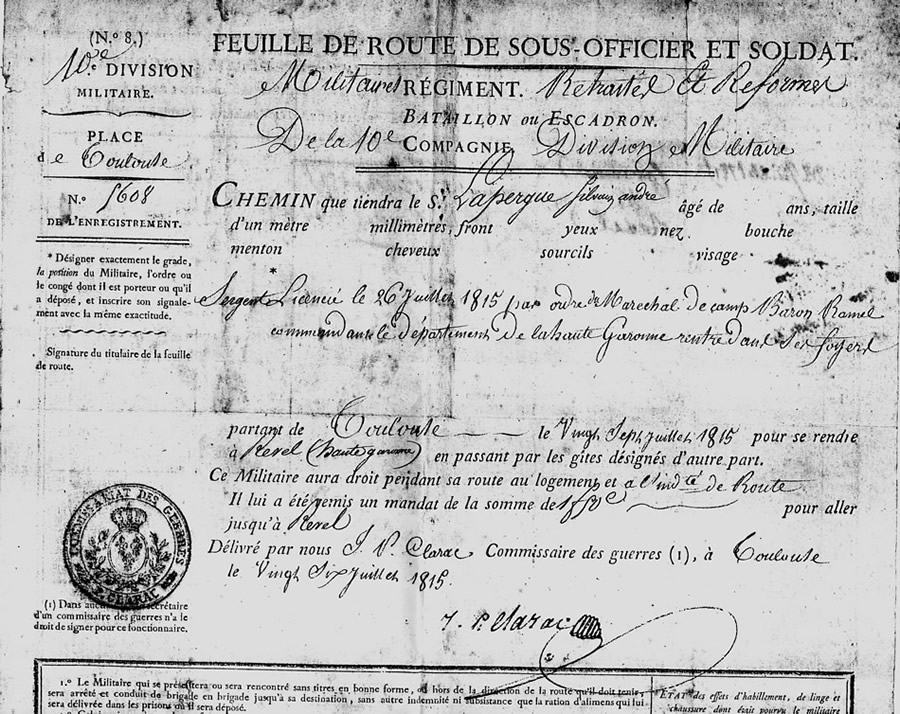 (N.º 8.)
10.e DIVISION
MILITAIRE.
PLACE
de Toulouse
N.º 5608
DE L'ENREGISTREMENT.
* Désigner exactement le grade,
la position du Militaire, l'ordre ou
le congé dont il est porteur ou qu'il
a déposé, et inscrire son signale-
ment avec la même exactitude.
Signature du titulaire de la feuille
de route.
FEUILLE DE ROUTE DE SOUS-OFFICIER ET SOLDAT.
Militaires RÉGIMENT. Retraités Et Reformés
BATAILLON OU ESCADRON.
De la 10e COMPAGNIE. Division Militaire
CHEMIN que tiendra le S.r Lapergue Silvain andré âgé de ans, taille
d'un mètre millimètres, front yeux nez bouche
menton cheveux sourcils visage
*
Sergent Licencié le 26 Juillet 1815 par ordre de Marechal de camp Baron Ramel
commandant le département de la haute Garonne rentre dans Ses foyers
partant de Toulouse le Vingt Sept Juillet 1815 pour se rendre
à Revel (haute garonne) en passant par les gîtes désignés d'autre part.
Ce Militaire aura droit pendant sa route au logement et a l'indté de Route
Il lui a été remis un mandat de la somme de pour aller
jusqu'à Revel
Délivré par nous J. P. Clarac Commissaire des guerres (1), à Toulouse
le Vingt Six Juillet 1815.
J. P. Clarac
COMMISSARIAT DES GUERRES
P. CLARAC
(1) Dans aucun secrétaire
d'un commissaire des guerres n'a le
droit de signer pour ce fonctionnaire.
1.º Le Militaire qui se présentera ou sera rencontré sans titres en bonne forme, ou hors de la direction de la route qu'il doit tenir,
sera arrêté et conduit de brigade en brigade jusqu'à sa destination, sans autre indemnité ni subsistance que la ration d'alimens qui lui
sera délivrée dans les prisons où il sera déposé.
ÉTAT des effets d'habillement, de linge et
chaussure dont étoit pourvu le militaire